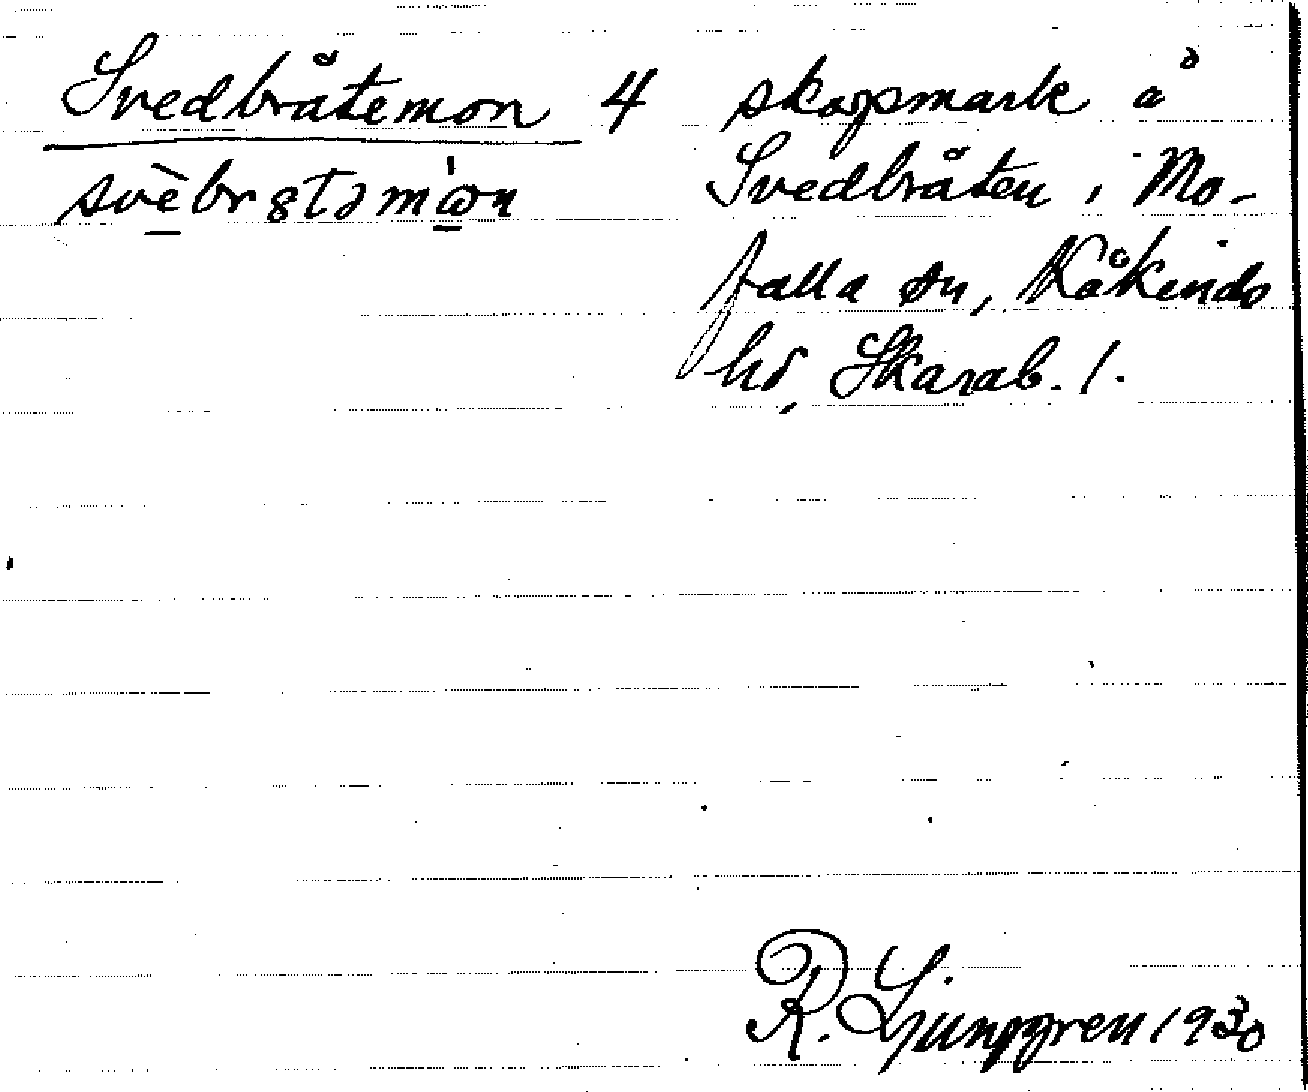 Svedbråtemon 4 skogsmark å
Svedbråten i Mo-
falla sn, Kåkinds
hd, Skarab. l.
R. Ljunggren 1930